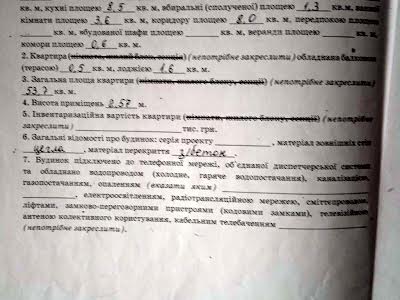 кв. м, кухні площею 8,5 кв. м, вбиральні (сполученої) площею 1,3 кв.м, ванної
кімнати площею 3,6 кв. м, коридору площею 8,0 кв. м, передпокою площею
кв. м, вбудованої шафи площею кв. м, веранди площею кв. м,
комори площею 0,6 кв. м.
2. Квартира (кімнати, жилий блок, секція) (непотрібне закреслити) обладнана балконом
(терасою) 0,5 кв. м, лоджією 1,6 кв. м.
3. Загальна площа квартири (кімнати, жилого блоку, секції) (непотрібне закреслити)
53,7 кв. м.
4. Висота приміщень 2,57 м.
5. Інвентаризаційна вартість квартири (кімнати, жилого блоку, секції) (непотрібне
закреслити) тис. грн.
6. Загальні відомості про будинок: серія проекту , матеріал зовнішніх стін
цегла, матеріал перекриття з/бетон.
7. Будинок підключено до телефонної мережі, об'єднаної диспетчерської системи
та обладнано водопроводом (холодне, гаряче водопостачання), каналізацією,
газопостачанням, опаленням (вказати яким)
, електроосвітленням, радіотрансляційною мережею, сміттєпроводом,
ліфтами, замково-переговорними пристроями (кодовими замками), телевізійною
антеною колективного користування, кабельним телебаченням
(непотрібне закреслити).